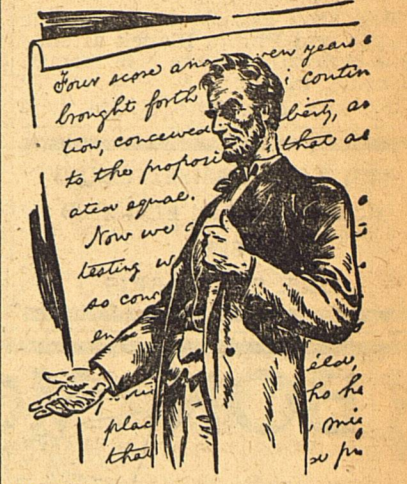 Four score and ven years a
brought forth contin
tion, conceived berty, an
to the proposi that al
ated equal.
Now we a
testing w
so conc
en
eld,
ho he
plac mig
that pr